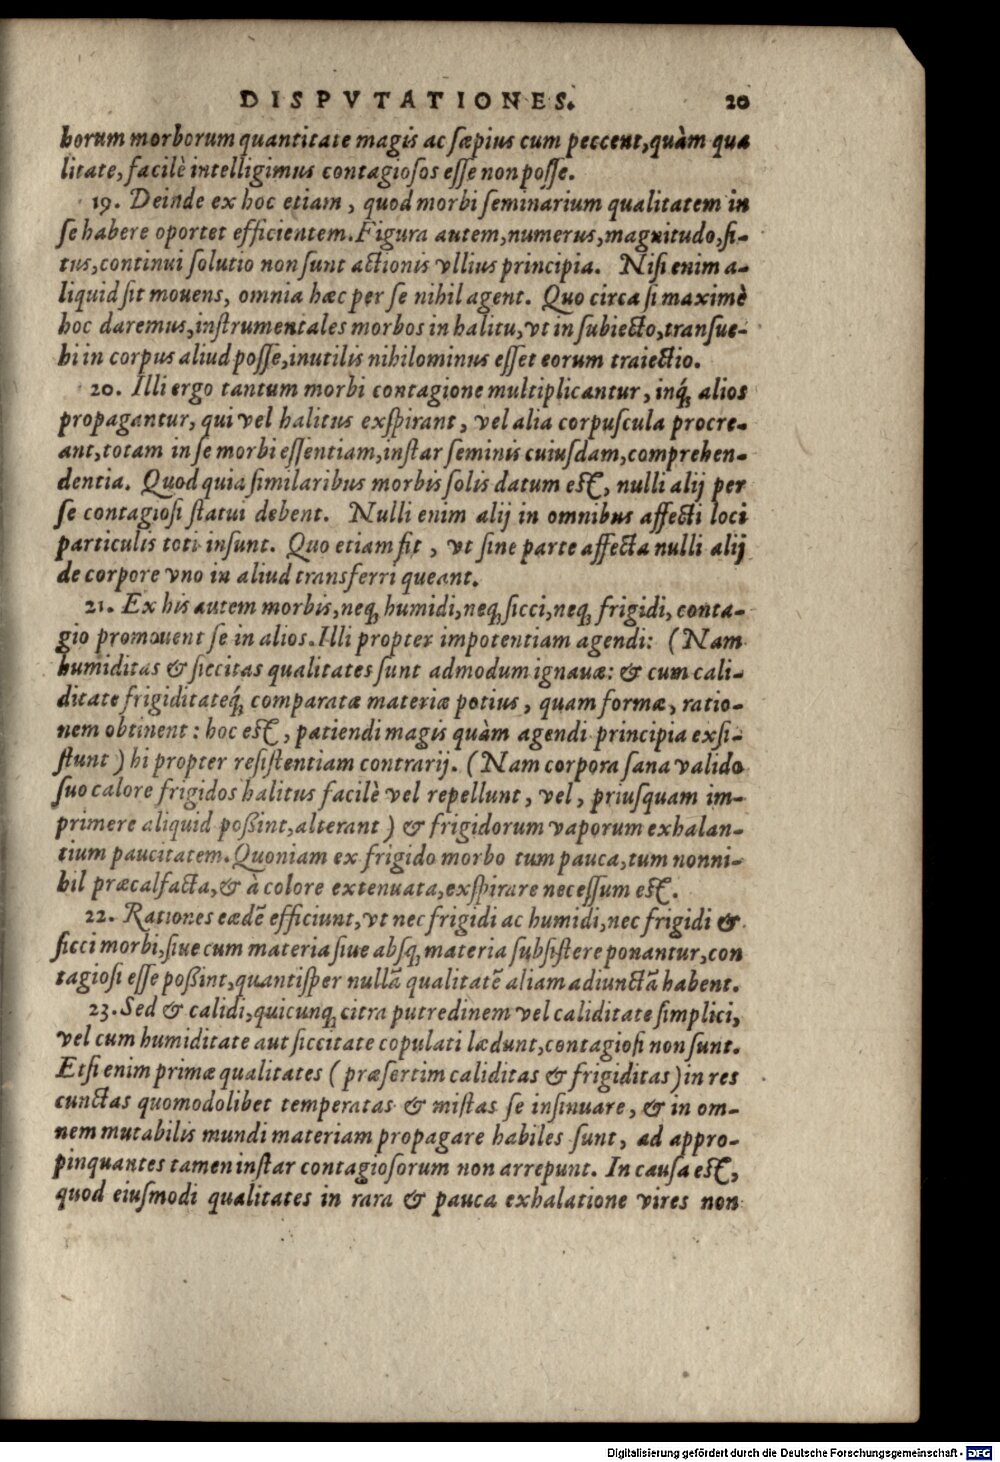 DISPVTATIONES. 20
horum morborum quantitate magis ac sæpius cum peccent, quàm qua
litate, facilè intelligimus contagiosos esse non posse.
19. Deinde ex hoc etiam, quod morbi seminarium qualitatem in
se habere oportet efficientem. Figura autem, numerus, magnitudo, si-
tus, continui solutio non sunt actionis vllius principia. Nisi enim a-
liquid sit mouens, omnia hæc per se nihil agent. Quo circa si maximè
hoc daremus, instrumentales morbos in halitu, vt in subiecto, transue-
hi in corpus aliud posse, inutilis nihilominus esset eorum traiectio.
20. Illi ergo tantum morbi contagione multiplicantur, inq́; alios
propagantur, qui vel halitus exspirant, vel alia corpuscula procre-
ant, totam in se morbi essentiam, instar seminis cuiusdam, comprehen-
dentia. Quod quia similaribus morbis solis datum est, nulli alij per
se contagiosi statui debent. Nulli enim alij in omnibus affecti loci
particulis toti insunt. Quo etiam fit, vt sine parte affecta nulli alij
de corpore vno in aliud transferri queant.
21. Ex his autem morbis, neq; humidi, neq; sicci, neq; frigidi, conta-
gio promouent se in alios. Illi propter impotentiam agendi: (Nam
humiditas & siccitas qualitates sunt admodum ignauæ: & cum cali-
ditate frigiditateq́; comparatæ materiæ potius, quam formæ, ratio-
nem obtinent: hoc est, patiendi magis quàm agendi principia exsi-
stunt) hi propter resistentiam contrarij. (Nam corpora sana valido
suo calore frigidos halitus facilè vel repellunt, vel, priusquam im-
primere aliquid poßint, alterant) & frigidorum vaporum exhalan-
tium paucitatem. Quoniam ex frigido morbo tum pauca, tum nonni-
hil præcalfacta, & à colore extenuata, exspirare necessum est.
22. Rationes eædẽ efficiunt, vt nec frigidi ac humidi, nec frigidi &
sicci morbi, siue cum materia siue absq; materia subsistere ponantur, con
tagiosi esse poßint, quantisper nullã qualitatẽ aliam adiunctã habent.
23. Sed & calidi, quicunq; citra putredinem vel caliditate simplici,
vel cum humiditate aut siccitate copulati lædunt, contagiosi non sunt.
Etsi enim primæ qualitates (præsertim caliditas & frigiditas) in res
cunctas quomodolibet temperatas & mistas se insinuare, & in om-
nem mutabilis mundi materiam propagare habiles sunt, ad appro-
pinquantes tamen instar contagiosorum non arrepunt. In causa est,
quod eiusmodi qualitates in rara & pauca exhalatione vires non
Digitalisierung gefördert durch die Deutsche Forschungsgemeinschaft - DFG